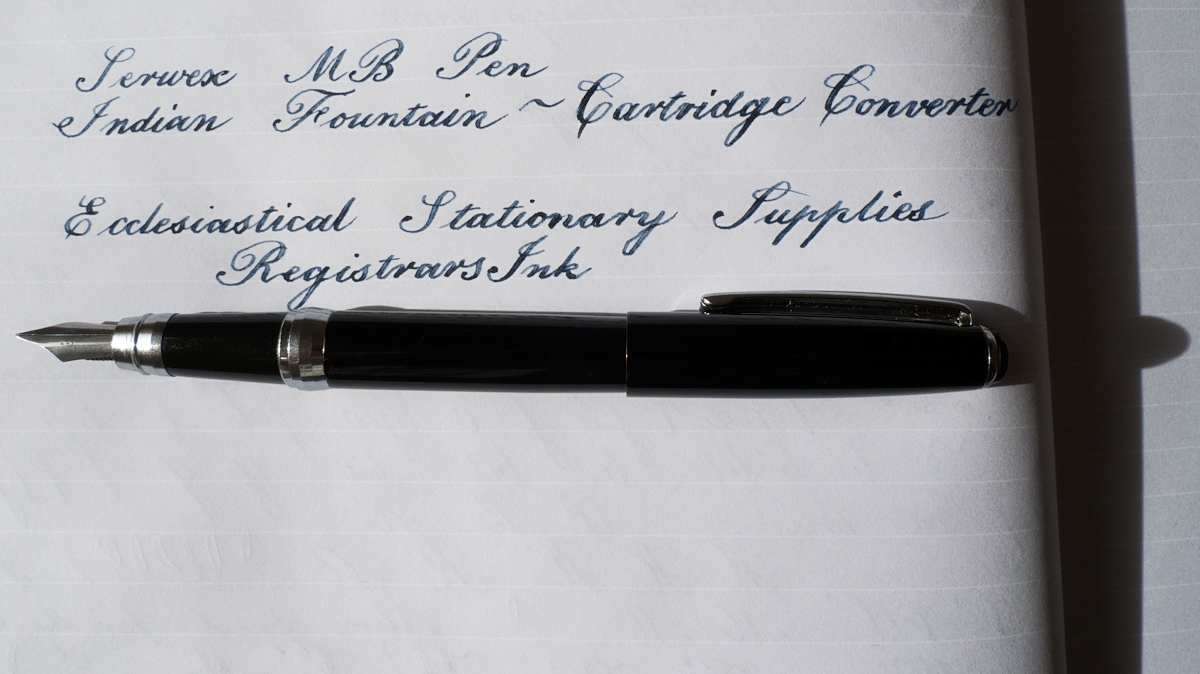 Serwex MB Pen
Indian Fountain ~ Cartridge Converter
Ecclesiastical Stationary Supplies
Registrars Ink